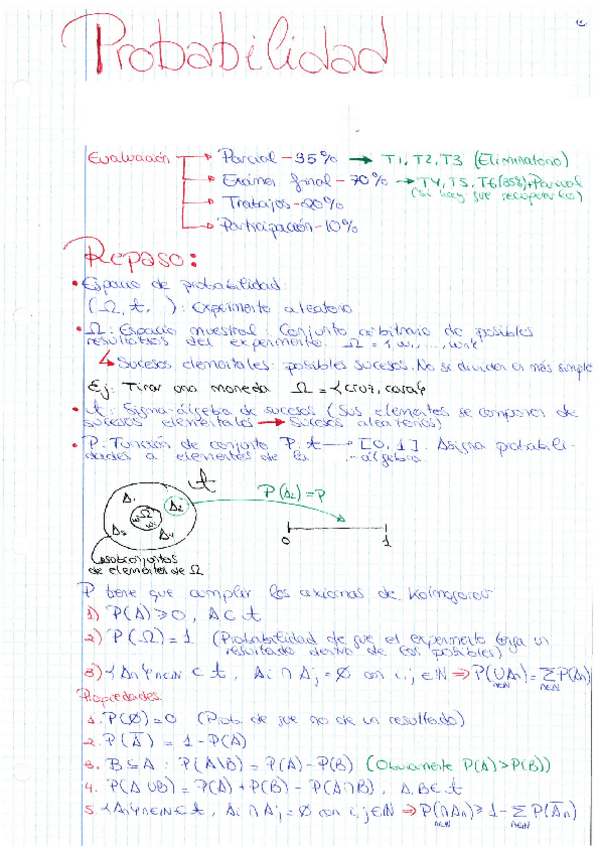 Probabilidad
Evaluación → Parcial - 35% → T1, T2, T3 (Eliminatorio)
→ Examen final - 70% → T4, T5, T6 (35%) + Parcial
(si hay que recuperarlo)
→ Trabajos - 20%
→ Participación - 10%
Repaso:
• Espacio de probabilidad:
(Ω, A, ): Experimento aleatorio
• Ω: Espacio muestral: Conjunto arbitrario de posibles
resultados del experimento Ω = {ω1, ..., ωn}
↳ Sucesos elementales: posibles sucesos. No se dividen en más simple
Ej: Tirar una moneda Ω = {cruz, cara}
• A: Sigma-álgebra de sucesos (Sus elementos se componen de
sucesos elementales → Sucesos aleatorios)
• P: Función de conjunto P: A → [0, 1]. Asigna probabili-
dades a elementos de la -álgebra.
A
P(A2) = P
A1 A2 Ω A3 A4
0 1
subconjuntos
de elementos de Ω
P tiene que cumplir los axiomas de Kolmogorov
1) P(A) ≥ 0, A ⊂ A
2) P(Ω) = 1 (Probabilidad de que el experimento tenga un
resultado dentro de los posibles)
3) {An}n∈N ⊂ A, Ai ∩ Aj = ∅ con i, j ∈ N ⇒ P(∪An) = Σ P(An)
n∈N n∈N
Propiedades
1. P(∅) = 0 (Prob. de que no de un resultado)
2. P(Ā) = 1 - P(A)
3. B ⊆ A : P(A\B) = P(A) - P(B) (Obviamente P(A) > P(B))
4. P(A ∪ B) = P(A) + P(B) - P(A ∩ B), A, B ∈ A
5. {An}n∈N ⊂ A, Ai ∩ Aj = ∅ con i, j ∈ N ⇒ P(∩An) ≥ 1 - Σ P(Ān)
n∈N n∈N